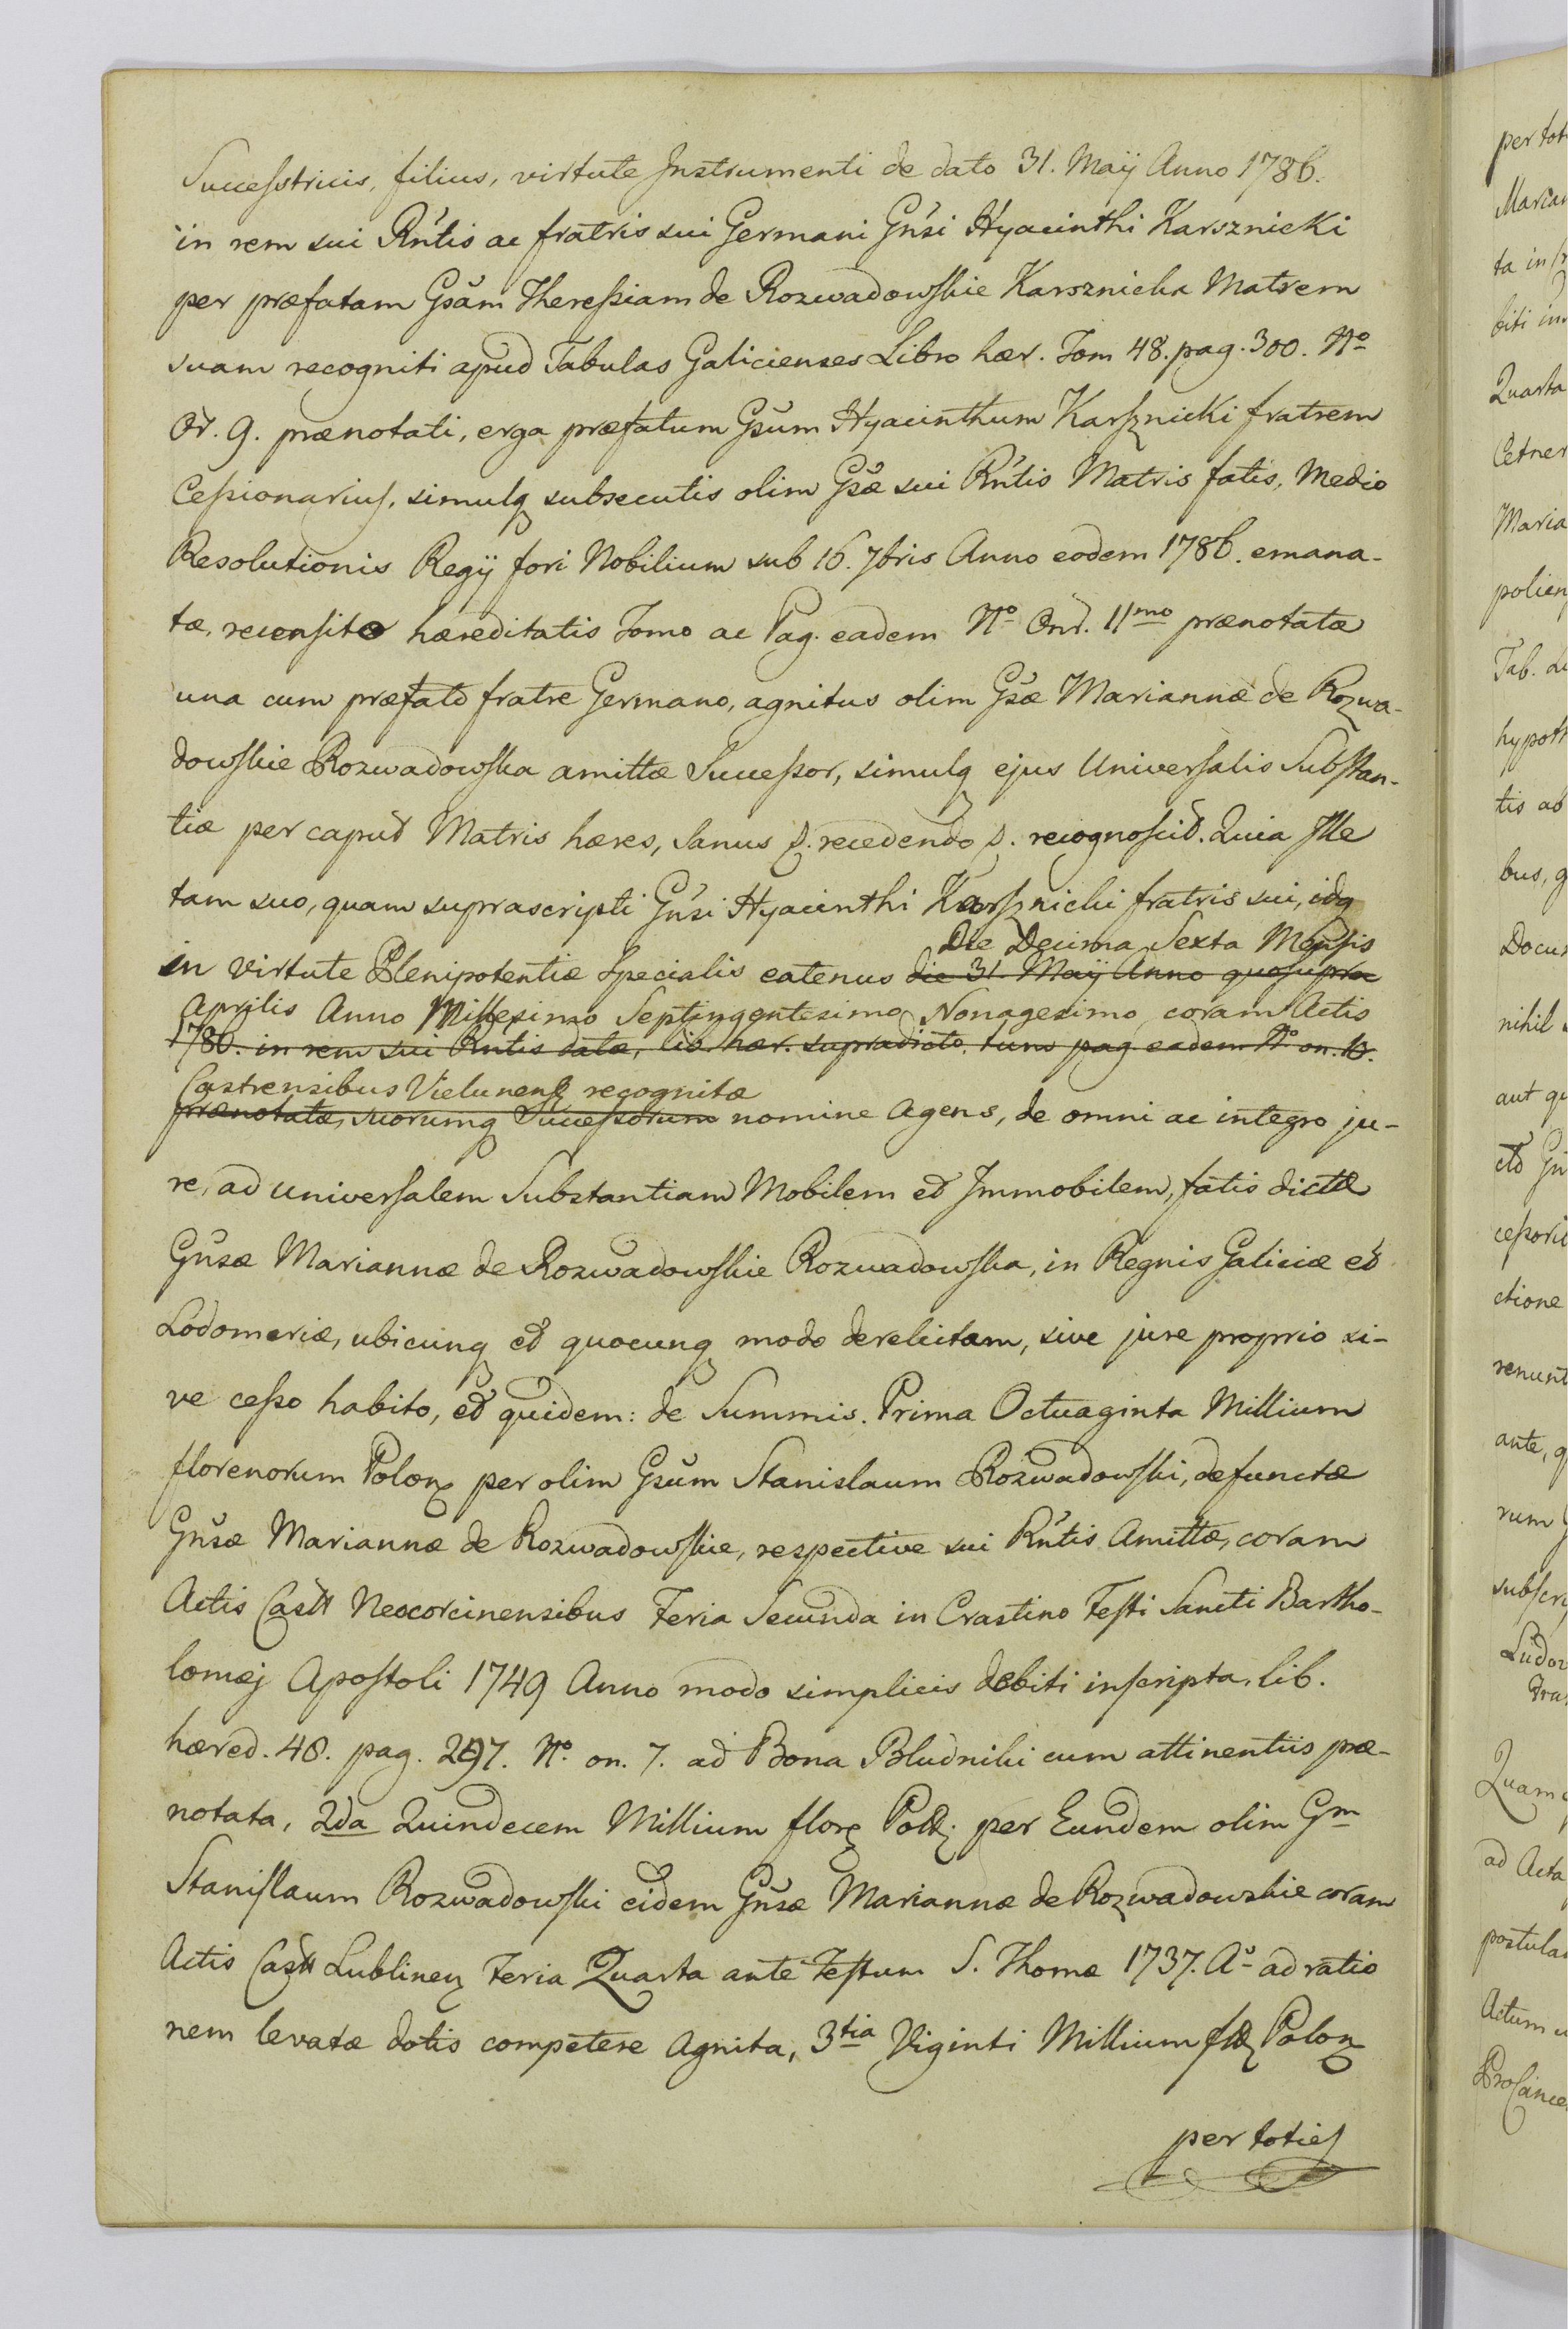 Successtricis, filius, virtute Instrumenti de dato 31. Maÿ Anno 1786.
in rem sui Rńtis ac fratris sui Germani Gńsi Hyacinthi Karsznicki
per præfatam Gsăm Theressiam de Rozwadowskie Karsznicka Matrem
suam recogniti apud Tabulas Galicienses Libro hær. Tom 48. pag. 300. Nº
Or. 9. prænotati, erga præfatum Gsŭm Hyacinthum Karsznicki fratrem
Cessionarius, simulq subsecutis olim Gsæ sui Rńtis Matris fatis, Medio
Resolutionis Regÿ fori Nobilium sub 16. 7bris Anno eodem 1786. emana-
tæ, recensitæ hæreditatis Tomo ac Pag. eadem Nº Ond. 11mo prænotatæ
una cum præfato fratre Germano, agnitus olim Gsæ Mariannæ de Rozwa-
dowskie Rozwadowska amittæ Successor, simulq ejus Universalis Substan-
tiæ per caput Matris hæres, Sanus p. recedendo p. recognoscit. Quia Ille
tam suo, quam suprascripti Gńsi Hyacinthi Karsznicki fratris sui, idq
Die Decima Sexta Mensis
in virtute Plenipotentiæ specialis eatenus die 31. Maÿ Anno quo supra
Aprilis Anno Millesimo Septingentesimo Nonagesimo coram Actis
1786. in rem sui Rntis datæ, lib. hær. supradicto, tuno pag eadem Nº on. 10.
Castrensibus Vielunens recognitæ
prænotatæ, suorumq Successorum nomine Agens, de omni ac integro ju-
re, ad universalem Substantiam Mobilem et Immobilem, fatis dictæ
Gńsæ Mariannæ de Rozwadowskie Rozwadowska, in Regnis Galiciæ et
Lodomeriæ, ubicunq et quocunq modo derelictam, sive jure proprio si-
ve cesso habito, et quidem: de Summis. Prima Octuaginta Millium
florenorum Polon per olim Gsŭm Stanislaum Rozwadowski, defunctæ
Gńsæ Mariannæ de Rozwadowskie, respective sui Rńtis Amittæ, coram
Actis Castt Neocorcinensibus Feria Secunda in Crastino Festi Sancti Bartho-
lomæj Apostoli 1749 Anno modo simplicis debiti inscripta, lib.
hæred. 48. pag. 297. Nº on. 7. ad Bona Bludniki cum attinentiis præ-
notata, 2da Quindecem Millium flor Poll. per Eundem olim Gm
Stanislaum Rozwadowski eidem Gńsæ Mariannæ de Rozwadowskie coram
Actis Castt Lublinen Feria Quarta ante Festum S. Thomæ 1737. Aº ad ratio
nem levatæ dotis competere Agnita, 3tia Viginti Millium fl Polon
per toties
per tot
Marian
ta in
biti in
Quarta
Cetner
Maria
polien
Tab. Lu
hypoth
tis ab
bus, q
Docum
nihil
aut qu
cto Gn
cessori
ctione
renunt
ante, q
rum
subscri
Ludov
Quam
ad Acta
postula
Actum